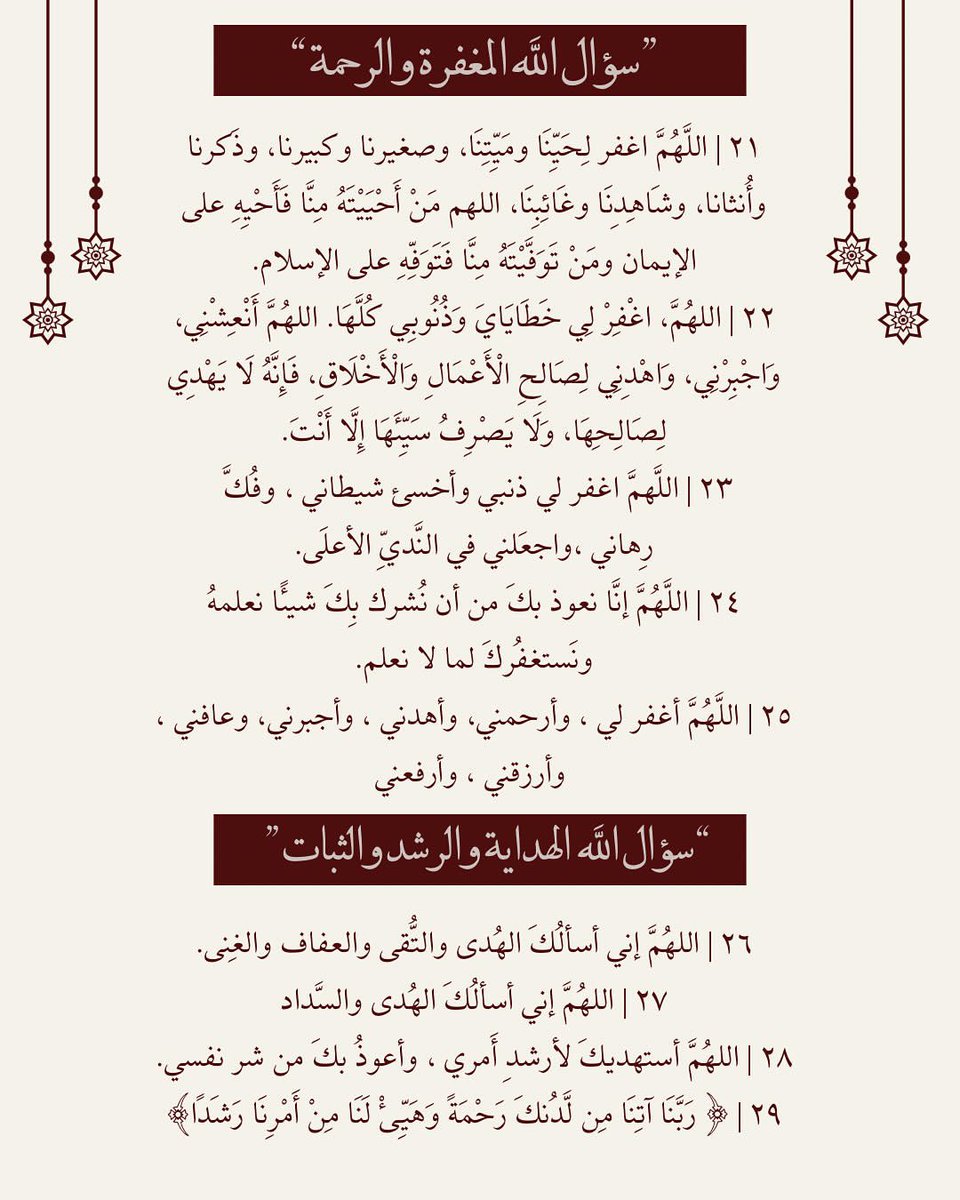 ”سؤال الله المغفرة والرحمة“
٢١ | اللَّهُمَّ اغفر لِحَيِّنَا ومَيِّتِنَا، وصغيرنا وكبيرنا، وذَكرنا
وأُنثانا، وشَاهِدِنَا وغَائِبِنَا، اللهم مَنْ أَحْيَيْتَهُ مِنَّا فَأَحْيِهِ على
الإيمان ومَنْ تَوَفَّيْتَهُ مِنَّا فَتَوَفّهِ على الإسلام.
٢٢ | اللهُمَّ، اغْفِرْ لِي خَطَايَايَ وَذُنُوبِي كُلَّهَا. اللهُمَّ أَنْعِشْنِي،
وَاجْبِرْنِي، وَاهْدِنِي لِصَالِحِ الْأَعْمَالِ وَالْأَخْلَاقِ، فَإِنَّهُ لَا يَهْدِي
لِصَالِحِهَا، وَلَا يَصْرِفُ سَيِّئَهَا إِلَّا أَنْتَ.
٢٣ | اللَّهمَّ اغفر لي ذنبي وأخسئ شيطاني ، وفُكَّ
رِهاني ،واجعَلني في النَّديِّ الأعلَى.
٢٤ | اللَّهُمَّ إنَّا نعوذ بكَ من أن نُشرك بِكَ شيئًا نعلمهُ
ونَستغفُركَ لما لا نعلم.
٢٥ | اللَّهُمَّ أغفر لي ، وأرحمني، وأهدني ، وأجبرني، وعافني ،
وأرزقني ، وأرفعني
“سؤال الله الهداية والرشد والثبات”
٢٦ | اللهُمَّ إني أسألُكَ الهُدى والتُّقى والعفاف والغِنِى.
٢٧ | اللهُمَّ إني أسألُكَ الهُدى والسَّداد
٢٨ | اللهُمَّ أستهديكَ لأرشدِ أَمري ، وأعوذُ بكَ من شر نفسي.
٢٩ | ﴿ رَبَّنَا آتِنَا مِن لَّدُنكَ رَحْمَةً وَهَيِّئْ لَنَا مِنْ أَمْرِنَا رَشَدًا﴾